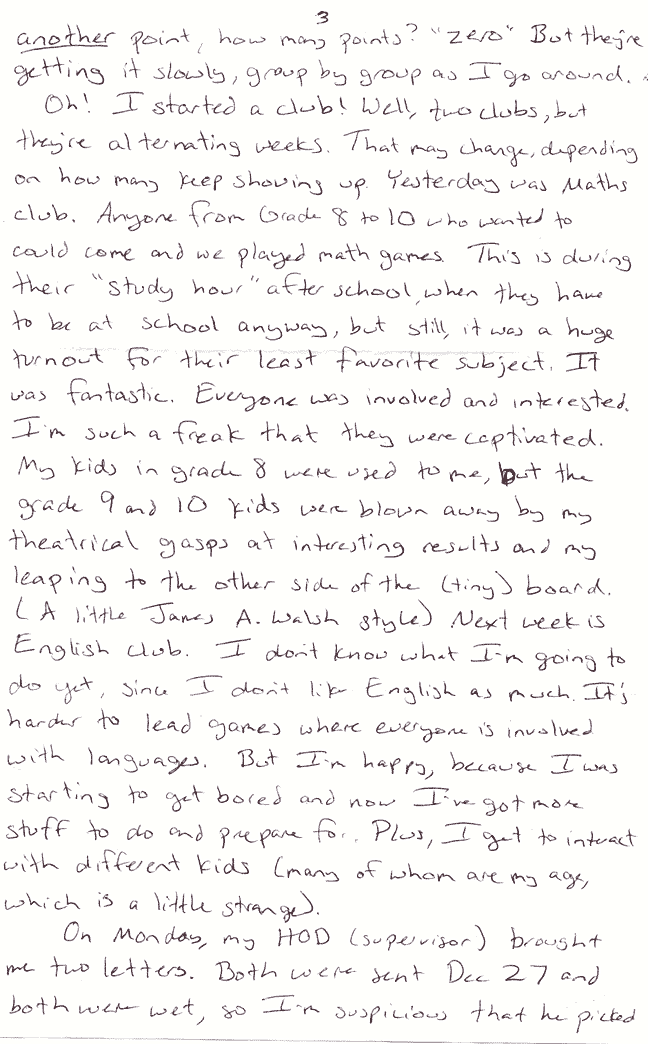 3
another point, how many points? "zero" But they're
getting it slowly, group by group as I go around.
Oh! I started a club! Well, two clubs, but
they're alternating weeks. That may change, depending
on how many keep showing up. Yesterday was Maths
club. Anyone from Grade 8 to 10 who wanted to
could come and we played math games. This is during
their "study hour" after school, when they have
to be at school anyway, but still, it was a huge
turnout for their least favorite subject. It
was fantastic. Everyone was involved and interested.
I'm such a freak that they were captivated.
My kids in grade 8 were used to me, but the
grade 9 and 10 kids were blown away by my
theatrical gasps at interesting results and my
leaping to the other side of the (tiny) board.
(A little James A. Walsh style) Next week is
English club. I don't know what I'm going to
do yet, since I don't like English as much. It's
harder to lead games where everyone is involved
with languages. But I'm happy, because I was
starting to get bored and now I've got more
stuff to do and prepare for. Plus, I get to interact
with different kids (many of whom are my age,
which is a little strange).
On Monday, my HOD (supervisor) brought
me two letters. Both were sent Dec 27 and
both were wet, so I'm suspicious that he picked